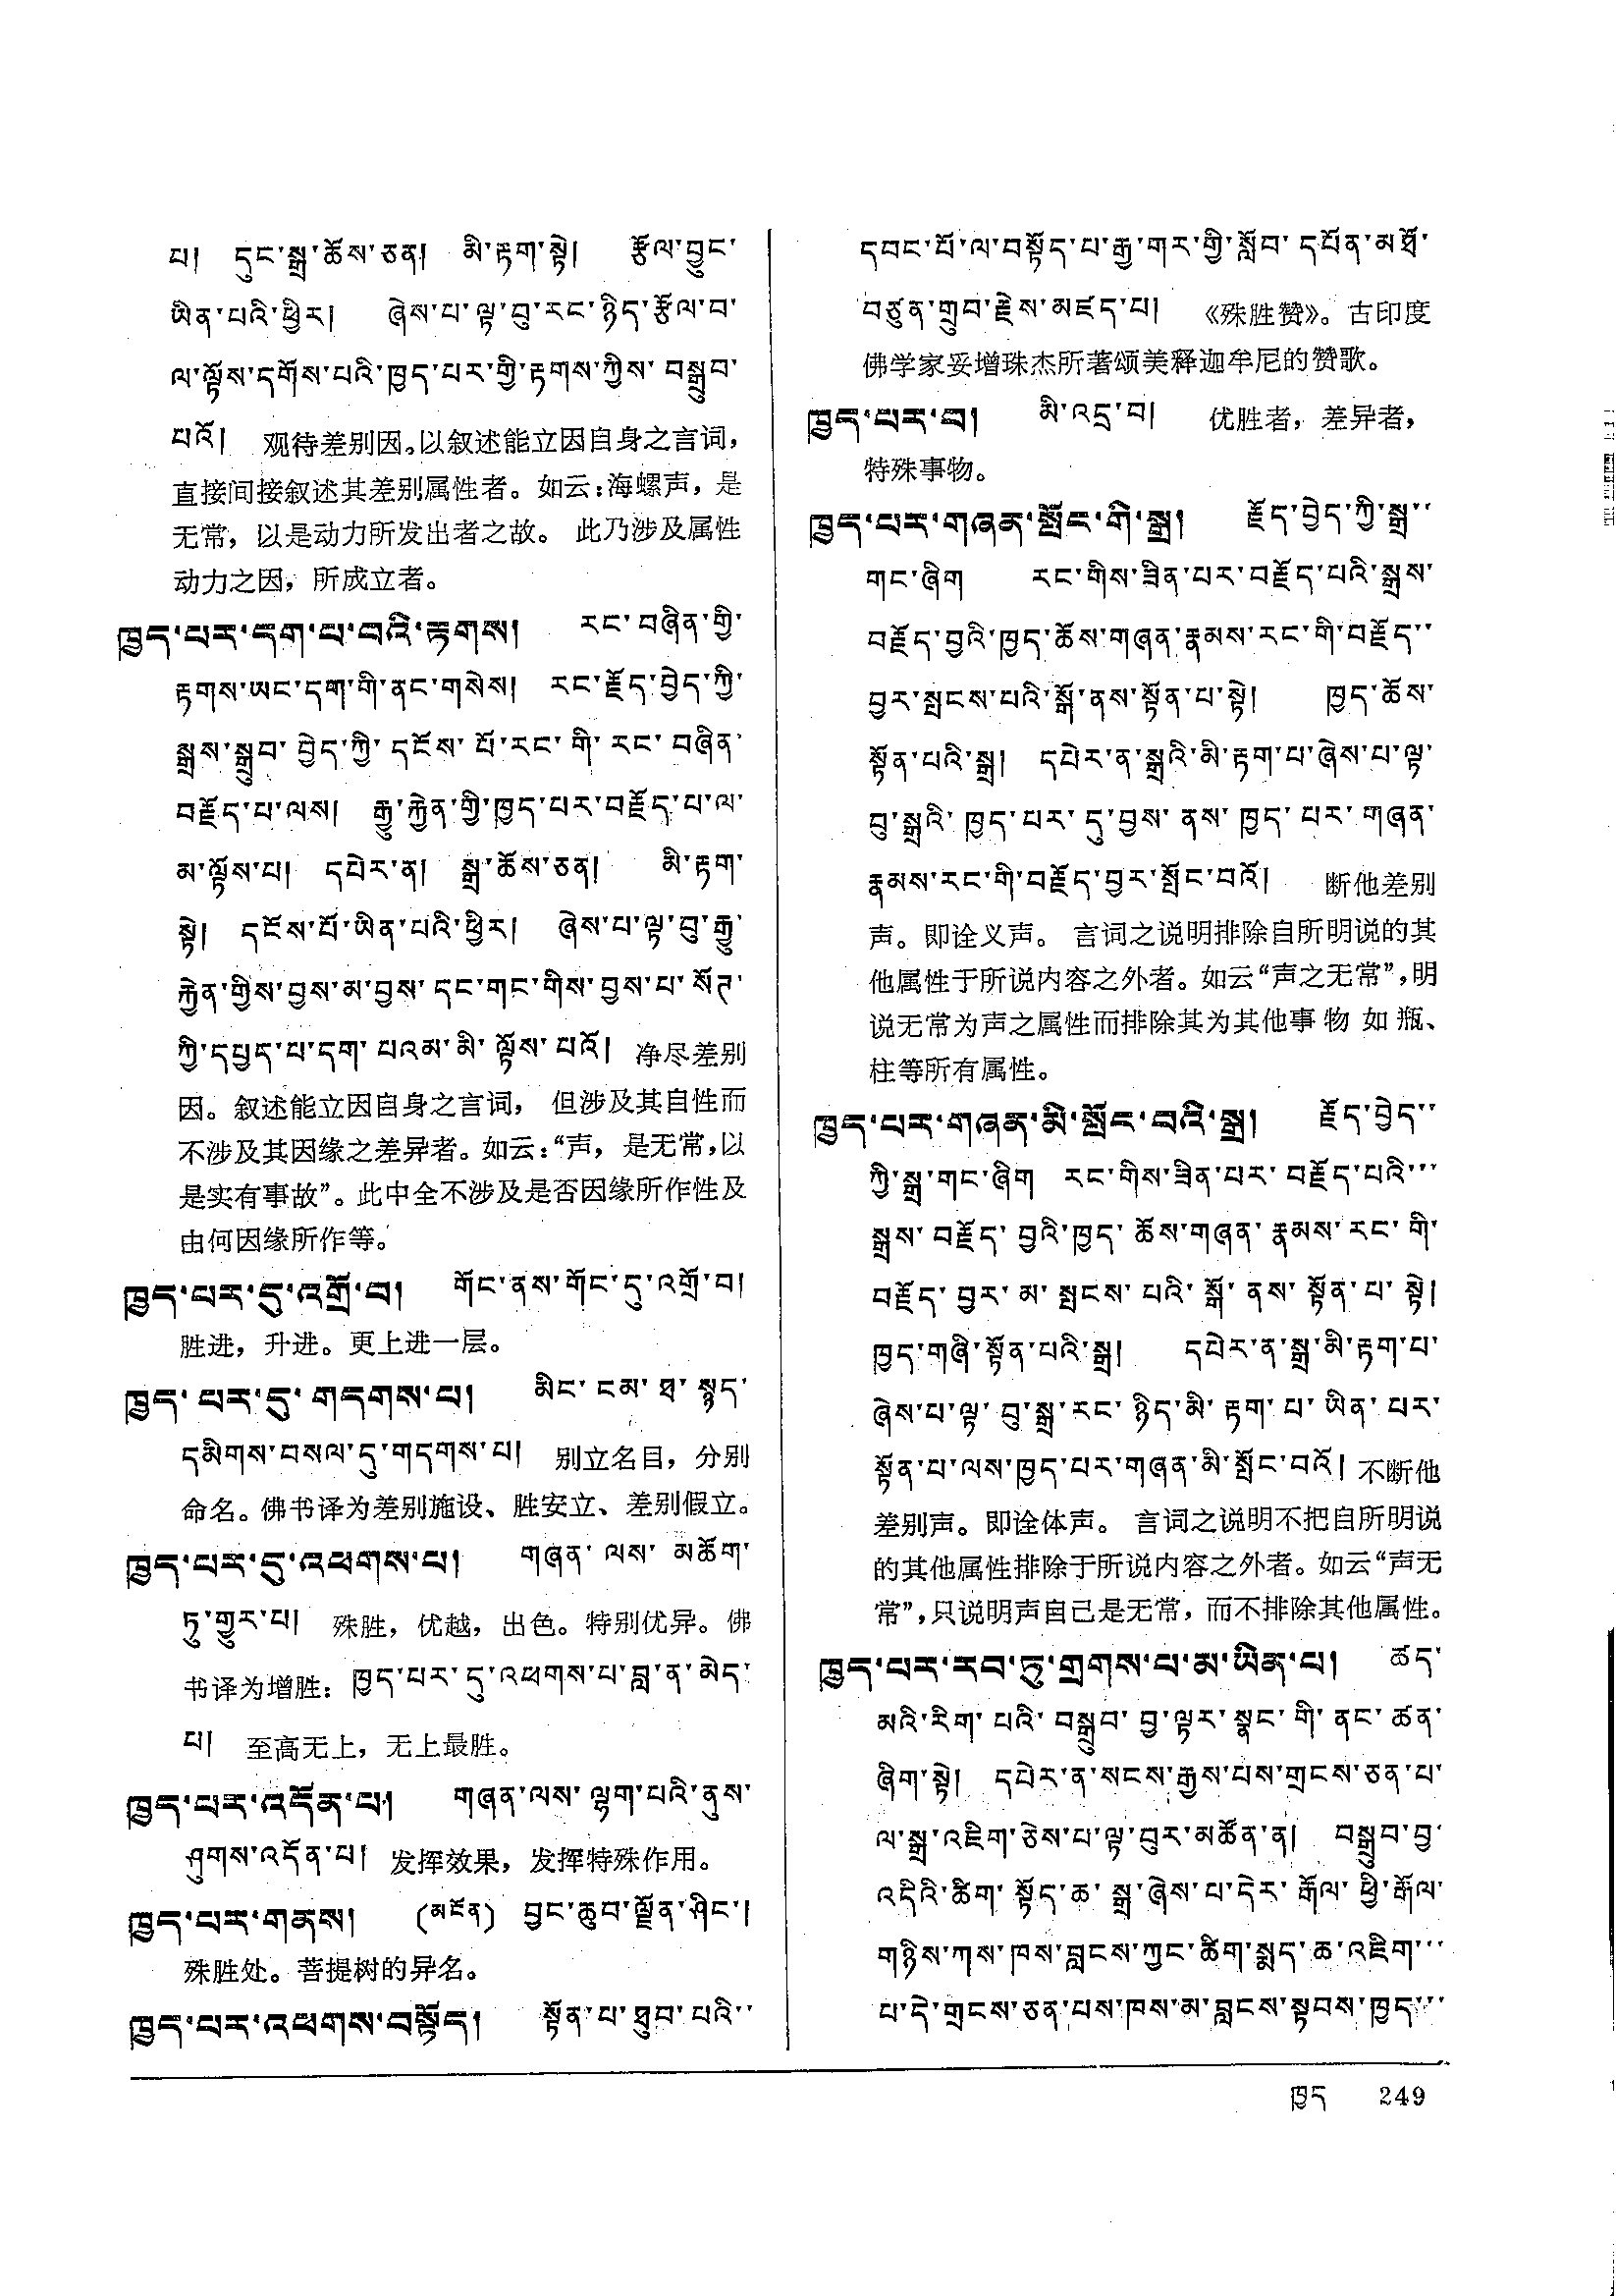 པ།  དུང་སྒྲ་ཆོས་ཅན།  མི་རྟག་སྟེ།  རྩོལ་བྱུང་
ཡིན་པའི་ཕྱིར།  ཞེས་པ་ལྟ་བུ་རང་ཉིད་རྩོལ་བ་
ལ་ལྟོས་དགོས་པའི་ཁྱད་པར་གྱི་རྟགས་ཀྱིས་བསྒྲུབ་
པའོ།  观待差别因。以叙述能立因自身之言词，
直接间接叙述其差别属性者。如云：海螺声，是
无常，以是动力所发出者之故。此乃涉及属性
动力之因，所成立者。
ཁྱད་པར་དག་པ་བའི་རྟགས།  རང་བཞིན་གྱི་
རྟགས་ཡང་དག་གི་ནང་གསེས།  རང་རྗོད་བྱེད་ཀྱི་
སྒྲས་སྒྲུབ་བྱེད་ཀྱི་དངོས་པོ་རང་གི་རང་བཞིན་
བརྗོད་པ་ལས།  རྒྱུ་རྐྱེན་གྱི་ཁྱད་པར་བརྗོད་པ་ལ་
མ་ལྟོས་པ།  དཔེར་ན།  སྒྲ་ཆོས་ཅན།  མི་རྟག་
སྟེ།  དངོས་པོ་ཡིན་པའི་ཕྱིར།  ཞེས་པ་ལྟ་བུ་རྒྱུ་
རྐྱེན་གྱིས་བྱས་མ་བྱས་དང་གང་གིས་བྱས་པ་སོཊ་
ཀྱི་དཔྱད་པ་དག་པའམ་མི་ལྟོས་པའོ།  净尽差别
因。叙述能立因自身之言词，但涉及其自性而
不涉及其因缘之差异者。如云：“声，是无常，以
是实有事故”。此中全不涉及是否因缘所作性及
由何因缘所作等。
ཁྱད་པར་དུ་འགྲོ་བ།  གོང་ནས་གོང་དུ་འགྲོ་བ།
胜进，升进。更上进一层。
ཁྱད་པར་དུ་གདགས་པ།  མིང་ངམ་ཐ་སྙད་
དམིགས་བསལ་དུ་གདགས་པ།  别立名目，分别
命名。佛书译为差别施设、胜安立、差别假立。
ཁྱད་པར་དུ་འཕགས་པ།  གཞན་ལས་མཆོག་
ཏུ་གྱུར་པ།  殊胜，优越，出色。特别优异。佛
书译为增胜：ཁྱད་པར་དུ་འཕགས་པ་བླ་ན་མེད་
པ།  至高无上，无上最胜。
ཁྱད་པར་འདོན་པ།  གཞན་ལས་ལྷག་པའི་ནུས་
ཤུགས་འདོན་པ།  发挥效果，发挥特殊作用。
ཁྱད་པར་གནས།  (མངོན)  བྱང་ཆུབ་ལྗོན་ཤིང་།
殊胜处。菩提树的异名。
ཁྱད་པར་འཕགས་བསྟོད།  སྟོན་པ་ཐུབ་པའི་་
དབང་པོ་ལ་བསྟོད་པ་རྒྱ་གར་གྱི་སློབ་དཔོན་མཐོ་
བཙུན་གྲུབ་རྗེས་མཛད་པ།  《殊胜赞》。古印度
佛学家妥增珠杰所著颂美释迦牟尼的赞歌。
ཁྱད་པར་བ།  མི་འདྲ་བ།  优胜者，差异者，
特殊事物。
ཁྱད་པར་གཞན་སྤོང་གི་སྒྲ།  རྗོད་བྱེད་ཀྱི་སྒྲ་་
གང་ཞིག  རང་གིས་ཟིན་པར་བརྗོད་པའི་སྒྲས་
བརྗོད་བྱའི་ཁྱད་ཆོས་གཞན་རྣམས་རང་གི་བརྗོད་་
བྱར་སྤངས་པའི་སྒོ་ནས་སྟོན་པ་སྟེ།  ཁྱད་ཆོས་
སྟོན་པའི་སྒྲ།  དཔེར་ན་སྒྲའི་མི་རྟག་པ་ཞེས་པ་ལྟ་
བུ་སྒྲའི་ཁྱད་པར་དུ་བྱས་ནས་ཁྱད་པར་གཞན་
རྣམས་རང་གི་བརྗོད་བྱར་སྤོང་བའོ།  断他差别
声。即诠义声。言词之说明排除自所明说的其
他属性于所说内容之外者。如云“声之无常”，明
说无常为声之属性而排除其为其他事物如瓶、
柱等所有属性。
ཁྱད་པར་གཞན་མི་སྤོང་བའི་སྒྲ།  རྗོད་བྱེད་་
ཀྱི་སྒྲ་གང་ཞིག  རང་གིས་ཟིན་པར་བརྗོད་པའི་་་
སྒྲས་བརྗོད་བྱའི་ཁྱད་ཆོས་གཞན་རྣམས་རང་གི་
བརྗོད་བྱར་མ་སྤངས་པའི་སྒོ་ནས་སྟོན་པ་སྟེ།
ཁྱད་གཞི་སྟོན་པའི་སྒྲ།  དཔེར་ན་སྒྲ་མི་རྟག་པ་
ཞེས་པ་ལྟ་བུ་སྒྲ་རང་ཉིད་མི་རྟག་པ་ཡིན་པར་
སྟོན་པ་ལས་ཁྱད་པར་གཞན་མི་སྤོང་བའོ།  不断他
差别声。即诠体声。言词之说明不把自所明说
的其他属性排除于所说内容之外者。如云“声无
常”，只说明声自己是无常，而不排除其他属性。
ཁྱད་པར་རབ་ཏུ་གྲགས་པ་མ་ཡིན་པ།  ཚད་
མའི་རིག་པའི་བསྒྲུབ་བྱ་ལྟར་སྣང་གི་ནང་ཚན་
ཞིག་སྟེ།  དཔེར་ན་སངས་རྒྱས་པས་གྲངས་ཅན་པ་
ལ་སྒྲ་འཇིག་ཅེས་པ་ལྟ་བུར་མཚོན་ན།  བསྒྲུབ་བྱ་
འདིའི་ཚིག་སྟོད་ཆ་སྒྲ་ཞེས་པ་དེར་རྒོལ་ཕྱི་རྒོལ་
གཉིས་ཀས་ཁས་བླངས་ཀྱང་ཚིག་སྨད་ཆ་འཇིག་་་
པ་དེ་གྲངས་ཅན་པས་ཁས་མ་བླངས་སྟབས་ཁྱད་་་
ཁྱད  249